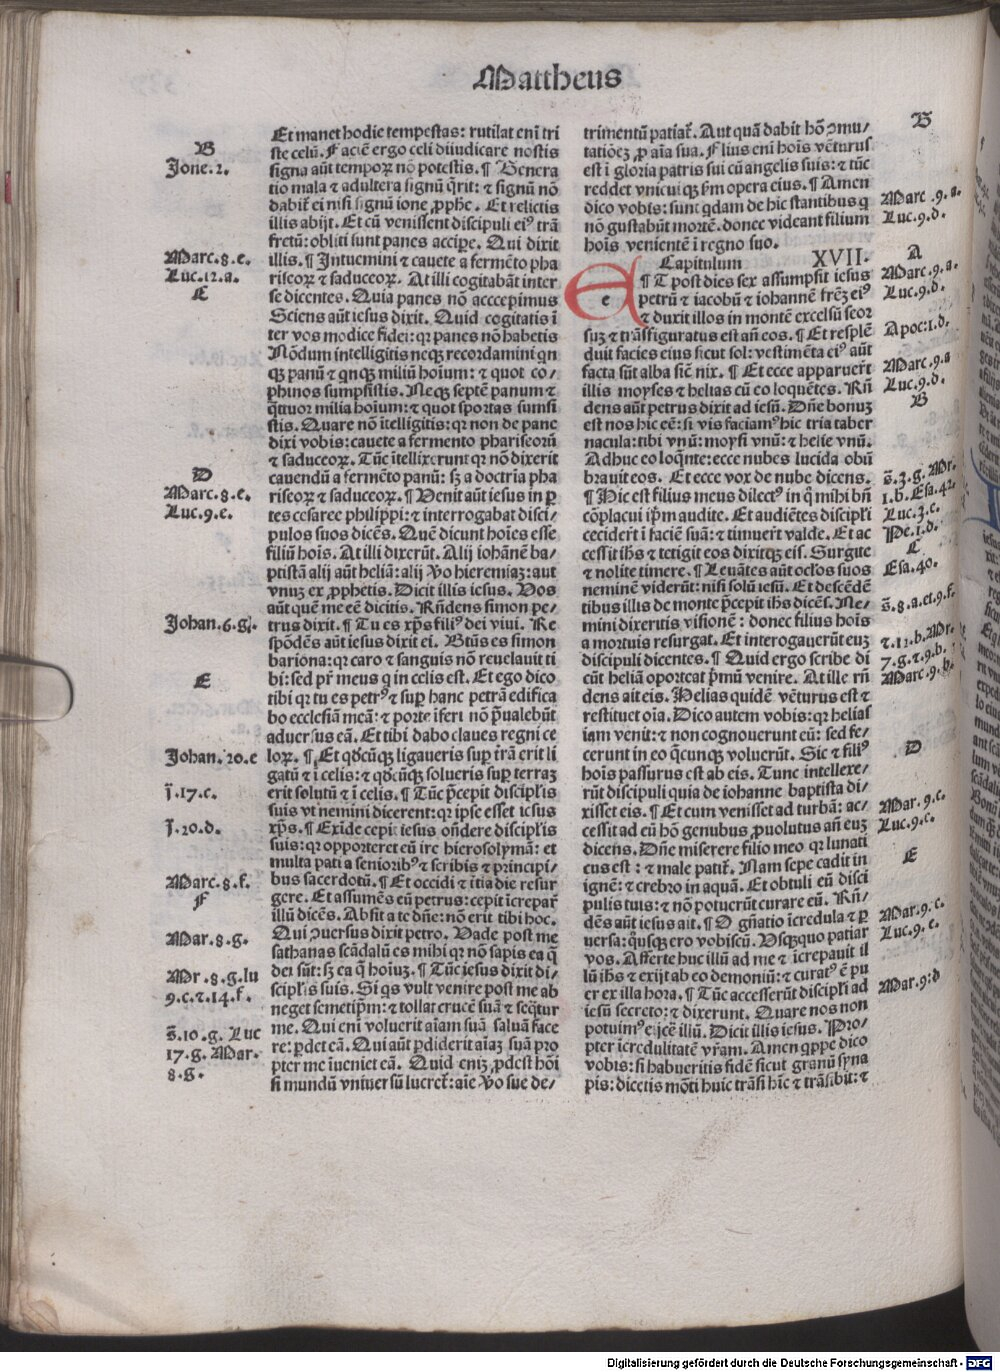 Mattheus
Et manet hodie tempestas: rutilat eni᷒ tri
B
ste celū. Faciē ergo celi diiudicare nostis
Jone.2.
signa aūt tempoꝝ nō potestis. ¶ Genera
tio mala ⁊ adultera signū q̄rit: ⁊ signū nō
dabit᷑ ei nisi signū ione ꝓphe. Et relictis
illis abijt. Et cū venissent discipuli eiꝰ trā
fretū: obliti sunt panes accipe. Qui dixit
Marc.8.e.
illis. ¶ Intuemini ⁊ cauete a fermēto pha
Luc.12.a.
riseoꝝ ⁊ saduceoꝝ. At illi cogitabāt inter
C
se dicentes. Quia panes nō acccepimus
Sciens aūt iesus dixit. Quid cogitatis ī
ter vos modice fidei: qꝛ panes nō habetis
Nōdum intelligitis neqꝫ recordamini qn
qꝫ panū ⁊ qnqꝫ miliū hoīum: ⁊ quot co/
phinos sumpsistis. Neqꝫ septē panum ⁊
q̄ttuor milia hoīum: ⁊ quot sportas sumsi
stis. Quare nō ītelligitis: qꝛ non de pane
dixi vobis: cauete a fermento phariseorū
⁊ saduceoꝝ. Tūc ītellixerunt qꝛ nō dixerit
D
cauendū a fermēto panū: sꝫ a doctria pha
Marc.8.e.
riseoꝝ ⁊ saduceoꝝ. ¶ Venit aūt iesus in ꝑ
Luc.9.e.
tes cesaree philippi: ⁊ interrogabat disci/
pulos suos dicēs. Quē dicunt hoīes esse
filiū hoīs. At illi dixerūt. Alij iohānē ba/
ptistā alij aūt heliā: alij ꝟo hieremiaꝫ: aut
vnuꝫ ex ꝓphetis. Dicit illis iesus. Vos
aūt quē me eē dicitis. Rn̄dens simon pe/
Johan.6.g.
trus dixit. ¶ Tu es xp̄s filiꝰ dei viui. Re
spōdēs aūt iesus dixit ei. Btūs es simon
bariona: qꝛ caro ⁊ sanguis nō reuelauit ti
E
bi: sed pr̄ meus q in celis est. Et ego dico
tibi qꝛ tu es petrꝰ ⁊ suꝑ hanc petrā edifica
bo ecclesiā meā: ⁊ porte īferi nō p̄ualebūt
aduersus eā. Et tibi dabo claues regni ce
Johan.20.e
loꝝ. ¶ Et qd̄cūqꝫ ligaueris suꝑ tr̄ā erit li
gatū ⁊ ī celis: ⁊ qd̄cūqꝫ solueris suꝑ terraꝫ
j̄.17.c.
erit solutū ⁊ ī celis. ¶ Tūc p̄cepit discipl̄is
suis vt nemini dicerent: qꝛ ipse esset iesus
j̄.20.d.
xp̄s. ¶ Exide cepit iesus on̄dere discipl̄is
suis: qꝛ opporteret eū ire hierosolymā: et
multa pati a senioribꝰ ⁊ scribis ⁊ principi/
Marc.8.f.
bus sacerdotū. ¶ Et occidi ⁊ ītia die resur
F
gere. Et assumēs eū petrus: cepit īcrepar̄
illū dicēs. Absit a te dn̄e: nō erit tibi hoc.
Mar.8.g.
Qui ꝯuersus dixit petro. Vade post me
sathanas scādalū es mihi qꝛ nō sapis ea q̄
Mr.8.g.lu
dei sūt: sꝫ ea q̄ hoīuꝫ. ¶ Tūc iesus dixit di/
9.c.⁊.14.f.
scipl̄is suis. Si qs vult venire post me ab
neget semetip̄m: ⁊ tollat crucē suā ⁊ seq̄tur
s̄.10.g. Luc
me. Qui eni᷒ voluerit aīam suā saluā face
17.g. Mar.
re: ꝑdet eā. Qui aūt ꝑdiderit aīaꝫ suā pro
8.g.
pter me īueniet eā. Quid eniꝫ ꝓdest hōi
si mundū vniuersū lucret᷑: aīe ꝟo sue de/
trimentū patiat᷑. Aut quā dabit hō ꝯmu/
B
tatiōeꝫ ꝓ aīa sua. Filius eni᷒ hoīs vēturus
est ī gloria patris sui cū angelis suis: ⁊ tūc
reddet vnicuiqꝫ sm̄ opera eius. ¶ Amen
Marc.9.a.
dico vobis: sunt qdam de hic stantibus q
Luc.9.d.
nō gustabūt mortē. donec videant filium
hoīs venientē ī regno suo.
Capitulum XVII.
A
¶ Et post dies sex assumpsit iesus
Marc.9.a.
petrū ⁊ iacobū ⁊ iohannē fr̄eꝫ eiꝰ
Luc.9.d.
⁊ duxit illos in montē excelsū seor
suꝫ ⁊ trāsfiguratus est an̄ eos. ¶ Et resplē
Apoc.1.d.
duit facies eius sicut sol: vestimēta eiꝰ aūt
facta sūt alba sic̄ nix. ¶ Et ecce apparuer̄t
Marc.9.a
illis moyses ⁊ helias cū eo loquētes. Rn̄
Luc.9.d.
dens aūt petrus dixit ad iesū. Dn̄e bonuꝫ
B
est nos hic eē: si vis faciamꝰ hic tria taber
nacula: tibi vnū: moysi vnū: ⁊ helie vnū.
Adhuc eo loq̄nte: ecce nubes lucida obū
brauit eos. Et ecce vox de nube dicens.
s̄.3.g. Mr.
¶ Hic est filius meus dilectꝰ in q̄ mihi bn̄
1.b. Esa.42.
cōplacui ip̄m audite. Et audiētes discipl̄i
Luc.3.c.
ceciderūt ī faciē suā: ⁊ timuer̄t valde. Et ac
Pe.1.d.
cessit ih̄s ⁊ tetigit eos dixitqꝫ eis. Surgite
C
⁊ nolite timere. ¶ Leuātes aūt ocl̄os suos
Esa.40.
neminē viderūt: nisi solū iesū. Et descēdē
tibus illis de monte p̄cepit ih̄s dicēs. Ne/
s̄.8.a.et.9.f.
mini dixeritis visionē: donec filius hoīs
a mortuis resurgat. Et interogauerūt euꝫ
⁊.12.b. Mr.
discipuli dicentes. ¶ Quid ergo scribe di
7.g.⁊.9.b.
cūt heliā oporteat p̄mū venire. At ille rn̄
Marc.9.b.
dens ait eis. Helias quidē vēturus est ⁊
restituet oīa. Dico autem vobis: qꝛ helias
iam venit: ⁊ non cognouerunt eū: sed fe/
cerunt in eo q̄cunqꝫ voluerūt. Sic ⁊ filiꝰ
D
hoīs passurus est ab eis. Tunc intellexe/
rūt discipuli quia de iohanne baptista di/
xisset eis. ¶ Et cum venisset ad turbā: ac/
Mar.9.c.
cessit ad eū hō genubus ꝓuolutus an̄ euꝫ
Luc.9.e.
dicens. Dn̄e miserere filio meo qꝛ lunati
cus est: ⁊ male patit᷑. Nam sepe cadit in
E
ignē: ⁊ crebro in aquā. Et obtuli eū disci
pulis tuis: ⁊ nō potuerūt curare eū. Rn̄/
dēs aūt iesus ait. ¶ O gn̄atio īcredula ⁊ ꝑ
Mar.9.c.
uersa: q̄usqꝫ ero vobiscū. Vsqꝫquo patiar
Luc.9.e.
vos. Afferte huc illū ad me ⁊ īcrepauit il
lū ih̄s ⁊ exijt ab eo demoniū: ⁊ curatꝰ ē pu
er ex illa hora. ¶ Tūc accesserūt discipl̄i ad
Mar.9.d
iesū secreto: ⁊ dixerunt. Quare nos non
potuimꝰ eijcē illū. Dicit illis iesus. Pro/
pter īcredulitatē vr̄am. Amen q̄ppe dico
vobis: si habueritis fidē sicut granū syna
pis: dicetis mōti huic trāsi hīc ⁊ trāsibit: ⁊
Digitalisierung gefördert durch die Deutsche Forschungsgemeinschaft - DFG